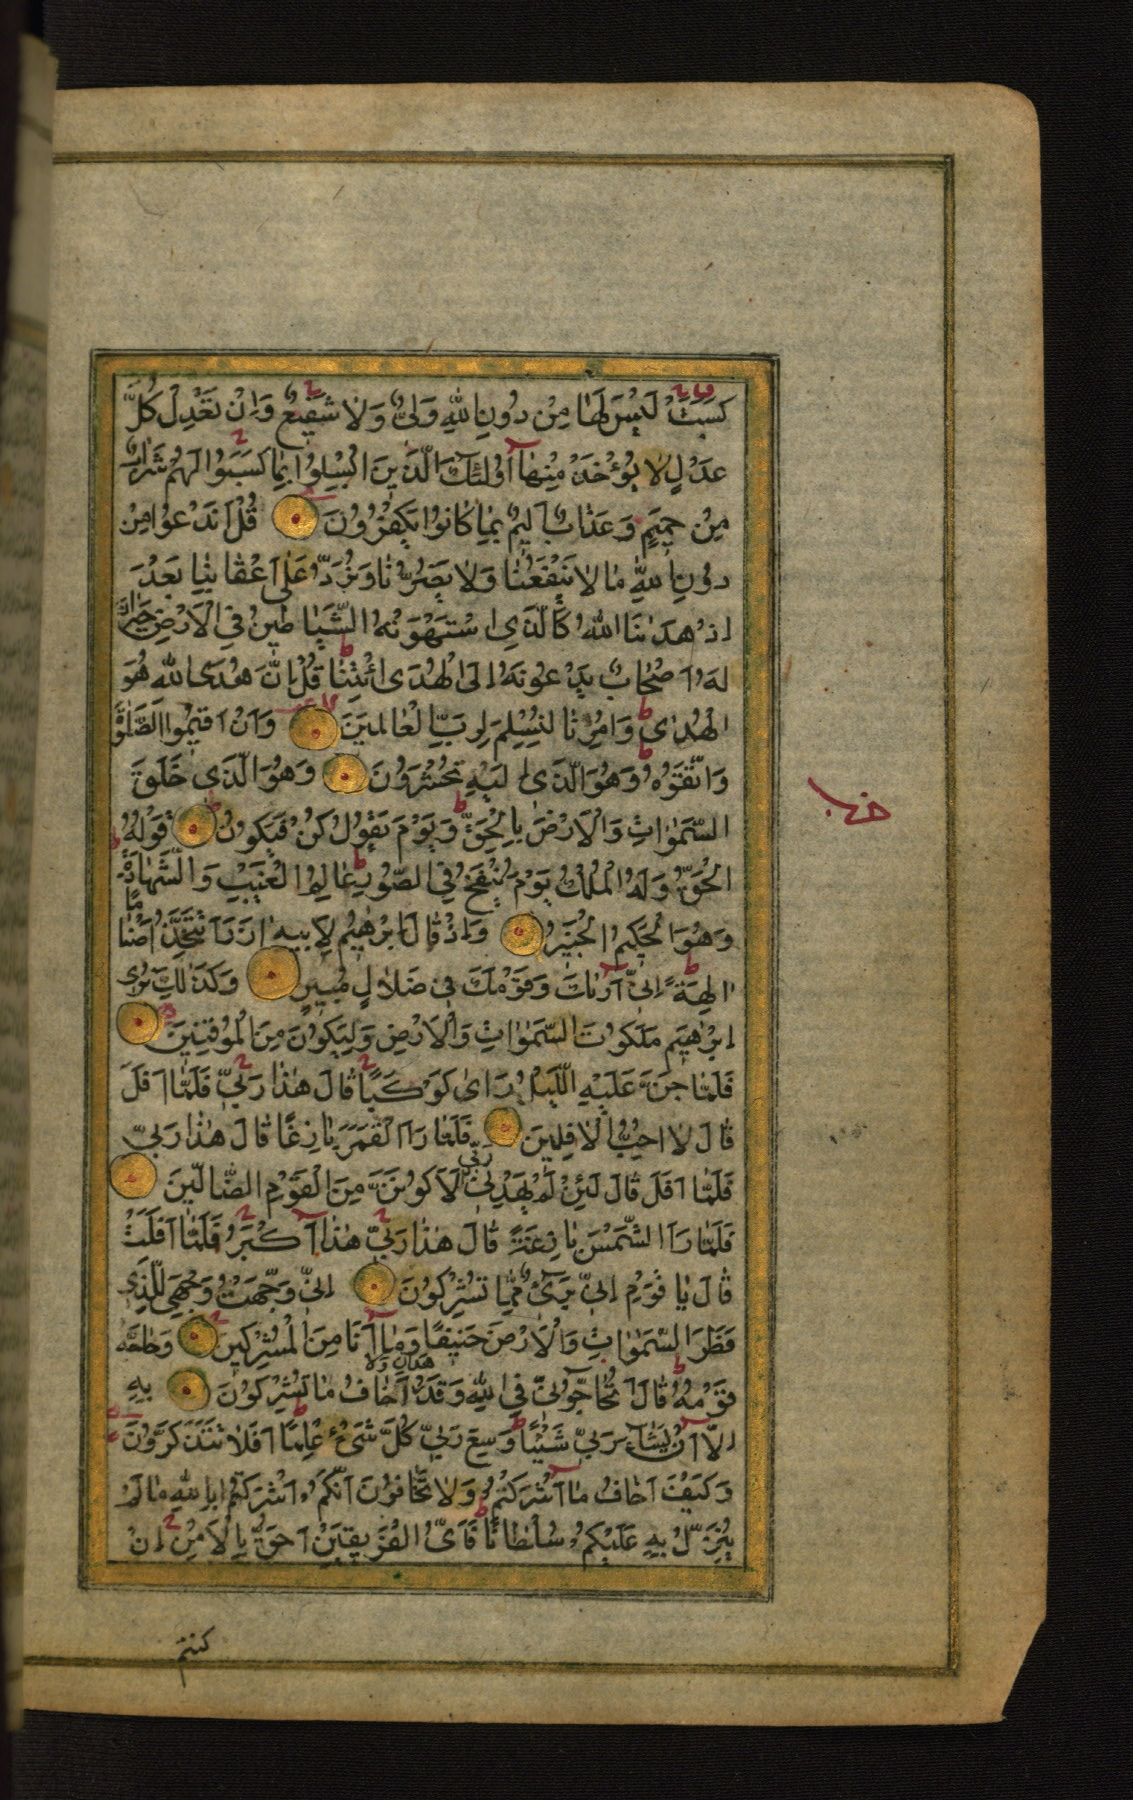 كَسَبَتْ لَيْسَ لَهَا مِنْ دُونِ اللهِ وَلِيٌّ وَلَا شَفِيعٌ وَاِنْ تَعْدِلْ كُلَّ
عَدْلٍ لَا يُؤْخَذْ مِنْهَا اُولٰئِكَ الَّذِينَ اُبْسِلُوا بِمَا كَسَبُوا لَهُمْ شَرَابٌ
مِنْ حَمِيمٍ وَعَذَابٌ اَلِيمٌ بِمَا كَانُوا يَكْفُرُونَ قُلْ اَنَدْعُوا مِنْ
دُونِ اللهِ مَا لَا يَنْفَعُنَا وَلَا يَضُرُّنَا وَنُرَدُّ عَلٰى اَعْقَابِنَا بَعْدَ
اِذْ هَدٰىنَا اللهُ كَالَّذِى اسْتَهْوَتْهُ الشَّيَاطِينُ فِي الْاَرْضِ حَيْرَانَ
لَهُ اَصْحَابٌ يَدْعُونَهُ اِلَى الْهُدَى ائْتِنَا قُلْ اِنَّ هُدَى اللهِ هُوَ
الْهُدٰى وَاُمِرْنَا لِنُسْلِمَ لِرَبِّ الْعَالَمِينَ وَاَنْ اَقِيمُوا الصَّلٰوةَ
وَاتَّقُوهُ وَهُوَ الَّذِى اِلَيْهِ تُحْشَرُونَ وَهُوَ الَّذِى خَلَقَ
السَّمٰوَاتِ وَالْاَرْضَ بِالْحَقِّ وَيَوْمَ يَقُولُ كُنْ فَيَكُونُ قَوْلُهُ
الْحَقُّ وَلَهُ الْمُلْكُ يَوْمَ يُنْفَخُ فِي الصُّورِ عَالِمُ الْغَيْبِ وَالشَّهَادَةِ
وَهُوَ الْحَكِيمُ الْخَبِيرُ وَاِذْ قَالَ اِبْرٰهِيمُ لِاَبِيهِ اٰزَرَ اَتَتَّخِذُ اَصْنَامًا
اٰلِهَةً اِنِّى اَرٰىكَ وَقَوْمَكَ فِى ضَلَالٍ مُبِينٍ وَكَذٰلِكَ نُرِى
اِبْرٰهِيمَ مَلَكُوتَ السَّمٰوَاتِ وَالْاَرْضِ وَلِيَكُونَ مِنَ الْمُوقِنِينَ
فَلَمَّا جَنَّ عَلَيْهِ اللَّيْلُ رَاٰى كَوْكَبًا قَالَ هٰذَا رَبِّى فَلَمَّا اَفَلَ
قَالَ لَا اُحِبُّ الْاٰفِلِينَ فَلَمَّا رَاَ الْقَمَرَ بَازِغًا قَالَ هٰذَا رَبِّى
فَلَمَّا اَفَلَ قَالَ لَئِنْ لَمْ يَهْدِنِى رَبِّى لَاَكُونَنَّ مِنَ الْقَوْمِ الضَّالِّينَ
فَلَمَّا رَاَ الشَّمْسَ بَازِغَةً قَالَ هٰذَا رَبِّى هٰذَا اَكْبَرُ فَلَمَّا اَفَلَتْ
قَالَ يَا قَوْمِ اِنِّى بَرِىءٌ مِمَّا تُشْرِكُونَ اِنِّى وَجَّهْتُ وَجْهِىَ لِلَّذِى
فَطَرَ السَّمٰوَاتِ وَالْاَرْضَ حَنِيفًا وَمَا اَنَا مِنَ الْمُشْرِكِينَ وَحَاجَّهُ
قَوْمُهُ قَالَ اَتُحَاجُّونِّى فِي اللهِ وَقَدْ هَدَانِ وَلَا اَخَافُ مَا تُشْرِكُونَ بِهِ
اِلَّا اَنْ يَشَاءَ رَبِّى شَيْئًا وَسِعَ رَبِّى كُلَّ شَىْءٍ عِلْمًا اَفَلَا تَتَذَكَّرُونَ
وَكَيْفَ اَخَافُ مَا اَشْرَكْتُمْ وَلَا تَخَافُونَ اَنَّكُمْ اَشْرَكْتُمْ بِاللهِ مَا لَمْ
يُنَزِّلْ بِهِ عَلَيْكُمْ سُلْطَانًا فَاَىُّ الْفَرِيقَيْنِ اَحَقُّ بِالْاَمْنِ اِنْ
كنتم